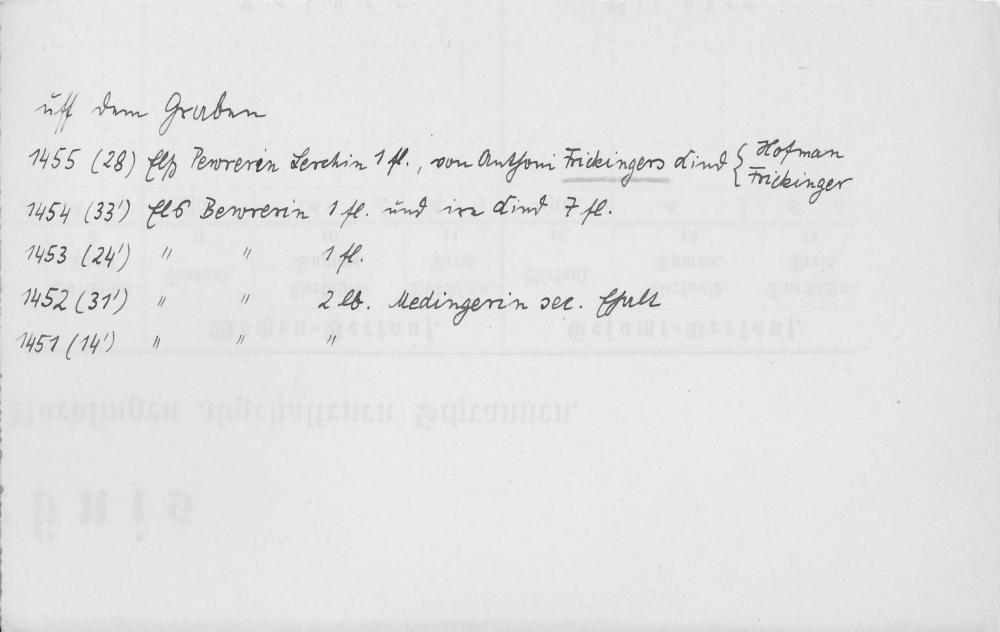 uff dem Graben
1455 (28) Elß Pewrerin Lerchin 1 fl., von Anthoni Frickingers kind { Hofman
Frickinger
1454 (33') Elß Bewrerin 1 fl. und ire kind 7 fl.
1453 (24') " " 1 fl.
1452 (31') " " 2 lb. Medingerin sec.
1451 (14') " " "